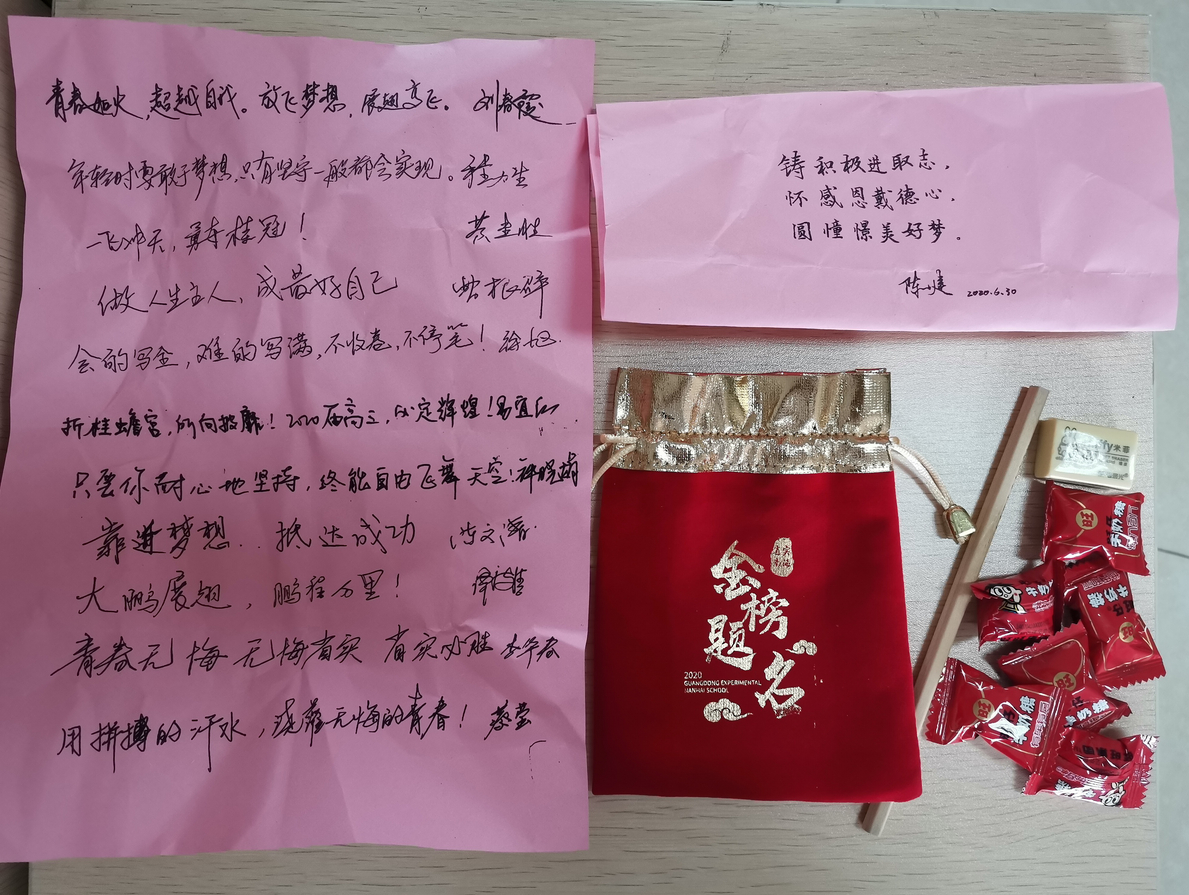 青春如火,超越自我。放飞梦想,展翅高飞。 刘春霞
年轻时要敢于梦想,只有坚守一般都会实现。
一飞冲天,勇夺桂冠!
做人生主人,成最好自己
会的写全,难的写满,不收卷,不停笔!
折桂蟾宫,所向披靡!2020届高三,必定辉煌!
只要你耐心地坚持,终能自由飞舞天空!
靠进梦想..抵达成功
大鹏展翅,鹏程万里!
青春无悔 无悔有实 有实必胜
用拼搏的汗水,浇灌无悔的青春! 蔡莹
铸积极进取志,
怀感恩戴德心,
圆憧憬美好梦。
陈婕 2020.6.30
金榜题名
2020
GUANGDONG EXPERIMENTAL
NANHAI SCHOOL
米菲
旺
牛奶糖
牛奶糖
旺
牛奶糖
牛奶糖